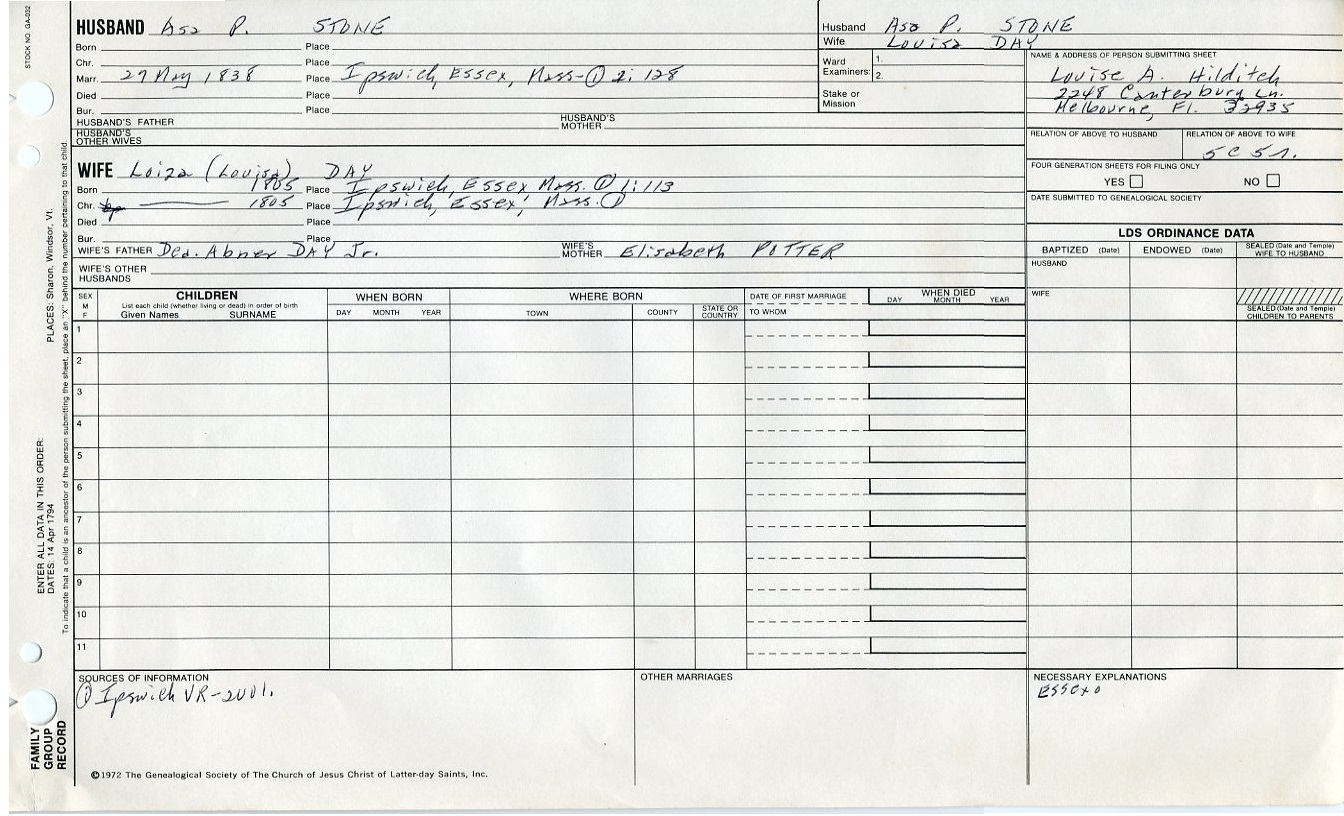 STOCK NO. GA-032
HUSBAND Asa P. STONE
Born Place
Chr. Place
Marr. 27 May 1838 Place Ipswich, Essex, Mass-① 2: 128
Died Place
Bur. Place
HUSBAND'S FATHER HUSBAND'S MOTHER
HUSBAND'S OTHER WIVES
Husband Asa P. STONE
Wife Louisa DAY
Ward Examiners: 1.
2.
Stake or Mission
NAME & ADDRESS OF PERSON SUBMITTING SHEET
Louise A. Hilditch
2248 Canterbury Ln.
Melbourne, Fl. 32935
RELATION OF ABOVE TO HUSBAND RELATION OF ABOVE TO WIFE
5C 5r.
FOUR GENERATION SHEETS FOR FILING ONLY
YES NO
DATE SUBMITTED TO GENEALOGICAL SOCIETY
WIFE Loiza (Louisa) DAY
Born 1805 Place Ipswich, Essex Mass. ① 1: 113
Chr. 1805 Place Ipswich, Essex, Mass. ①
Died Place
Bur. Place
WIFE'S FATHER Dea. Abner DAY Jr. WIFE'S MOTHER Elisabeth POTTER
WIFE'S OTHER HUSBANDS
LDS ORDINANCE DATA
BAPTIZED (Date) ENDOWED (Date) SEALED (Date and Temple) WIFE TO HUSBAND
HUSBAND
WIFE
SEALED (Date and Temple) CHILDREN TO PARENTS
SEX M F CHILDREN WHEN BORN WHERE BORN DATE OF FIRST MARRIAGE WHEN DIED
List each child (whether living or dead) in order of birth
Given Names SURNAME DAY MONTH YEAR TOWN COUNTY STATE OR COUNTRY TO WHOM DAY MONTH YEAR
1
2
3
4
5
6
7
8
9
10
11
SOURCES OF INFORMATION OTHER MARRIAGES NECESSARY EXPLANATIONS
① Ipswich VR-2001.
Essex
©1972 The Genealogical Society of The Church of Jesus Christ of Latter-day Saints, Inc.
FAMILY GROUP RECORD
ENTER ALL DATA IN THIS ORDER:
DATES: 14 Apr 1794
PLACES: Sharon, Windsor, Vt.
To indicate that a child is an ancestor of the person submitting the sheet, place an "X" behind the number pertaining to that child.